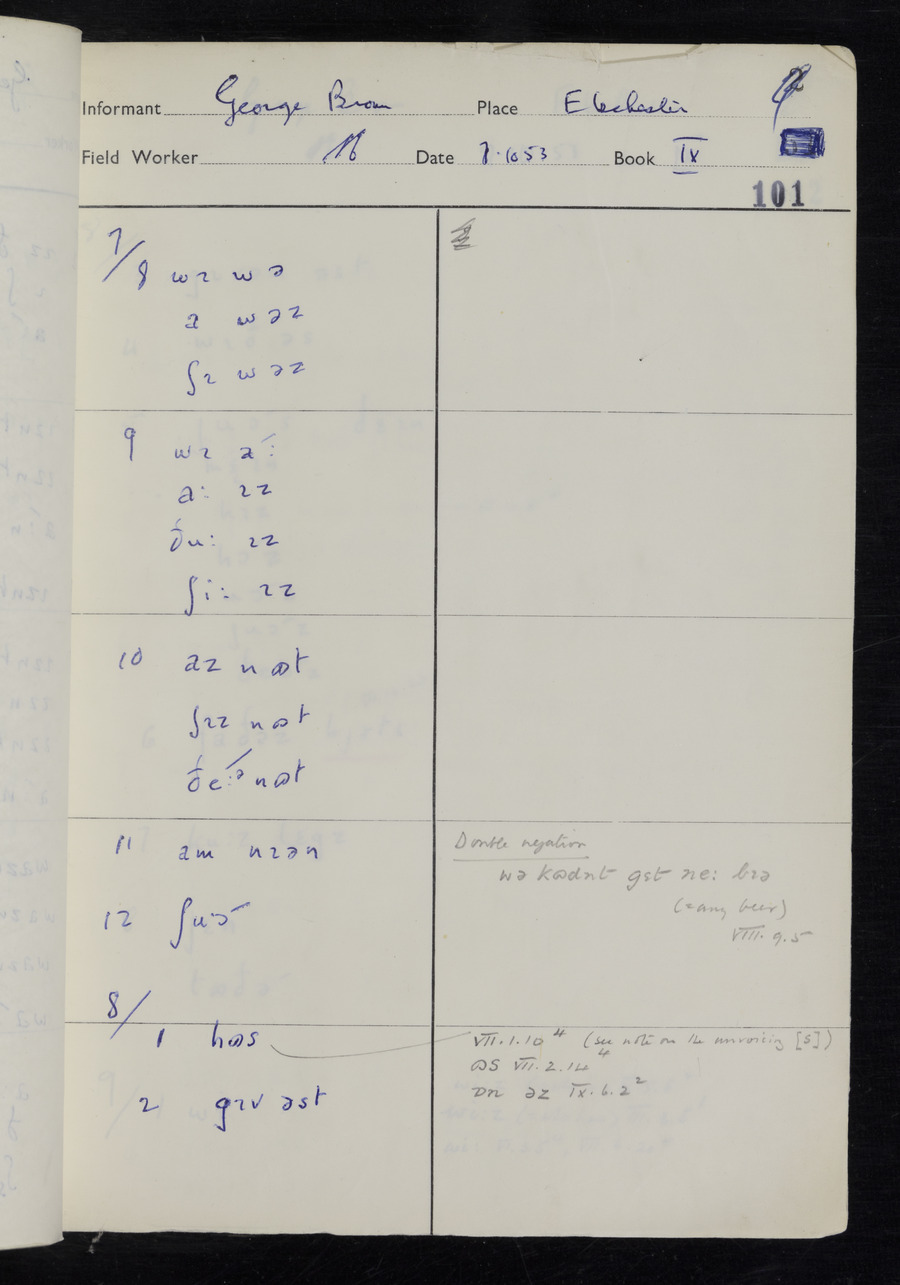 Informant George Brown Place Ebchester
Field Worker Date 7.10.53 Book IX
101
7/
8 wɪ wə
a wəz
ʃɪ wəz
9 wɪ a:
a: ɪz
ðu: ɪz
ʃi: ɪz
10 az nɒt
ʃɪz nɒt
nɒt
11 am nɪən
Double negation
wə kʊdnt gɛt ne: bɪə
(= any beer)
VIII.9.5
12
8/
1 hʊs
VII.1.10⁴ (see note on the unvoicing [s])
ʊs VII.2.14⁴
əz IX.6.2²
2 gɪv əst